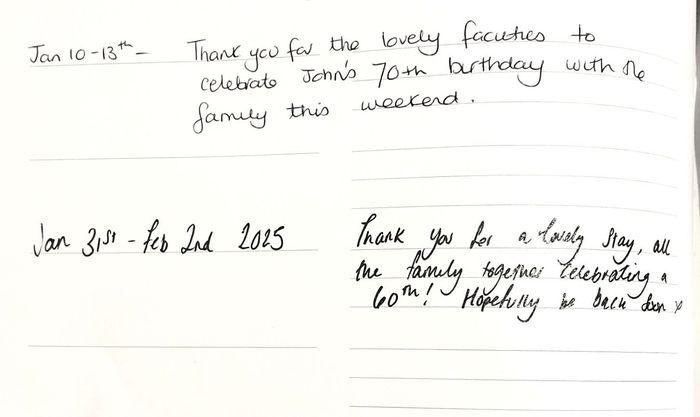 Jan 10-13th - Thank you for the lovely facilities to
celebrate John's 70th birthday with the
family this weekend.
Jan 31st - Feb 2nd 2025 Thank you for a lovely stay, all
the family together celebrating a
60th! Hopefully be back soon x